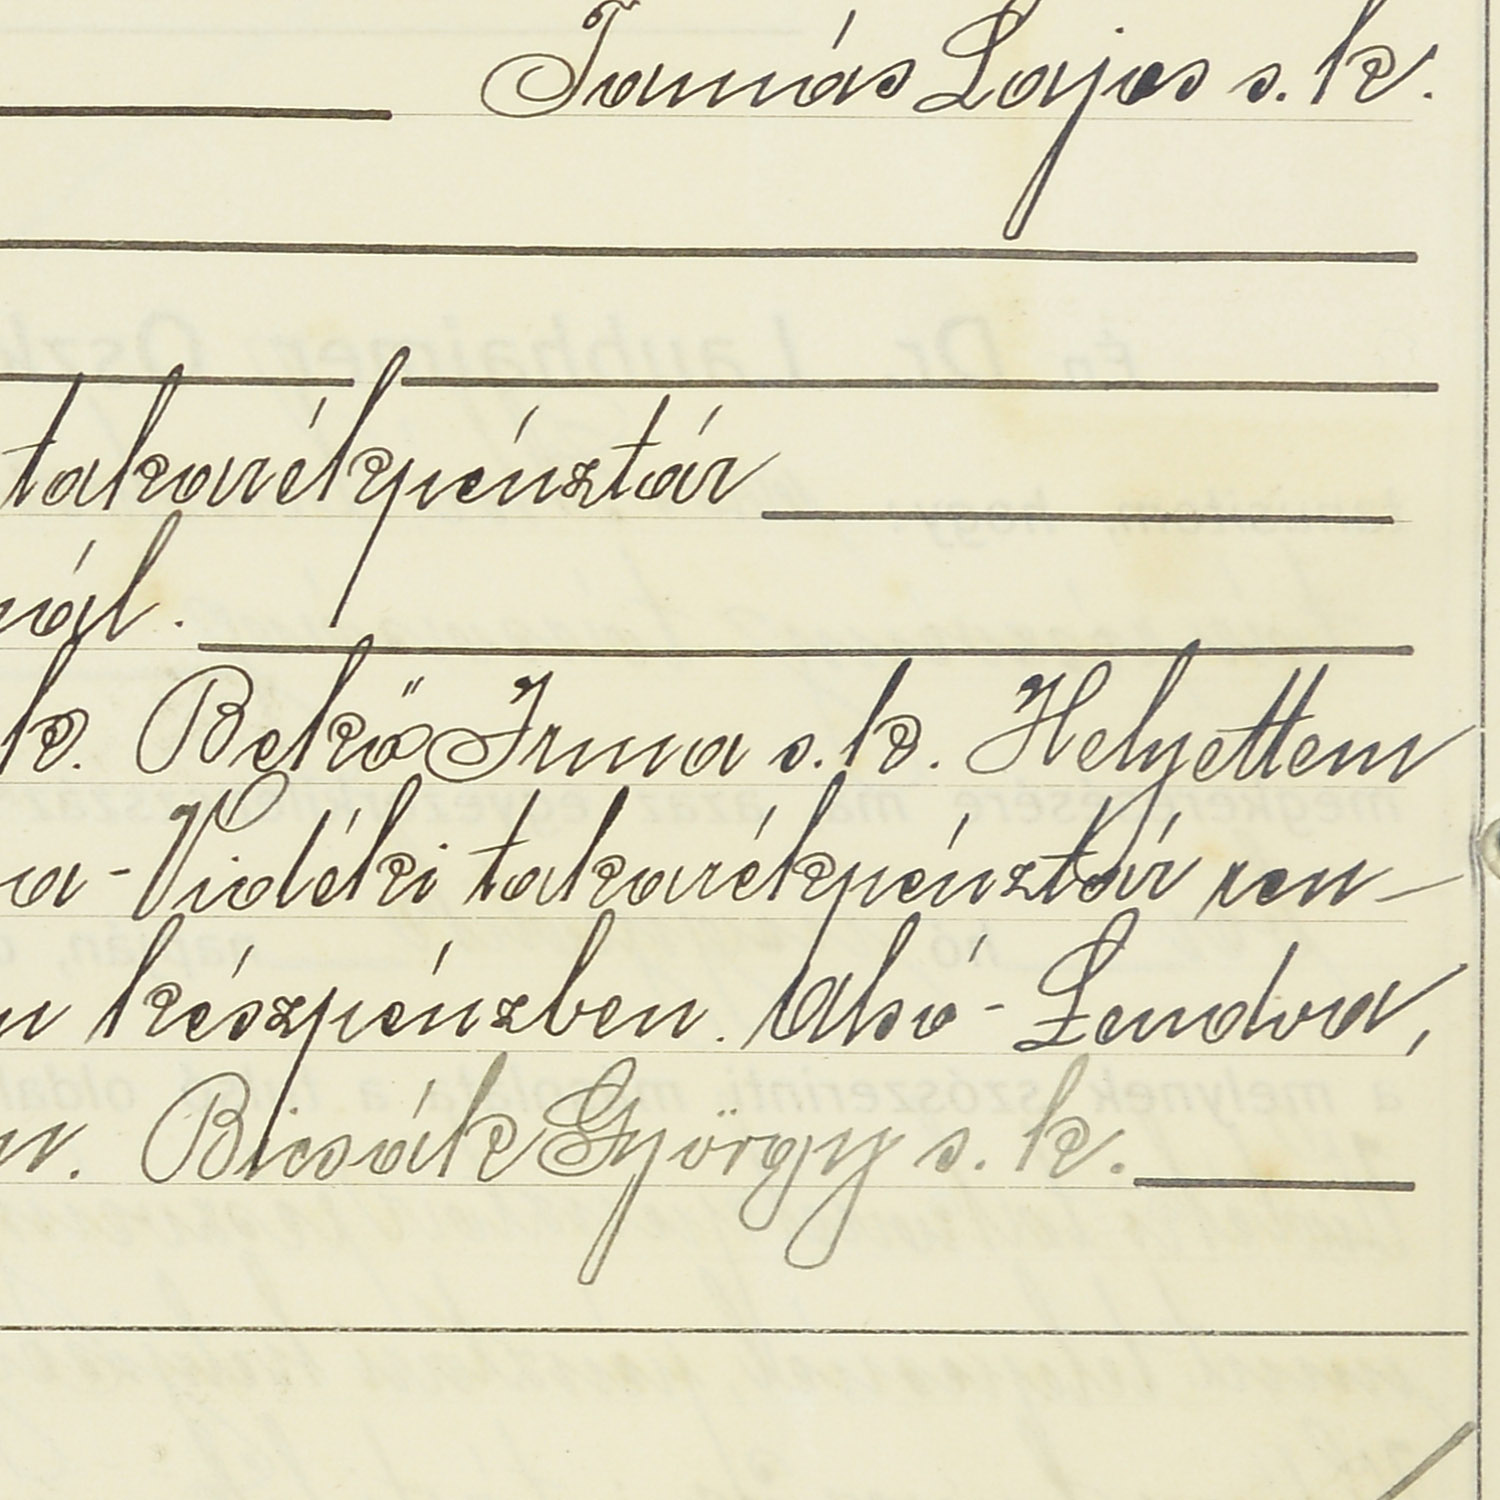 Tamás Lajos s. k.
takarékpénztár
nál.
k. Bekő Irma s. k. Helyettem
a-Vidéki takarékpénztár ren-
készpénzben. Alsó-Lendva,
Bicsák György s. k.